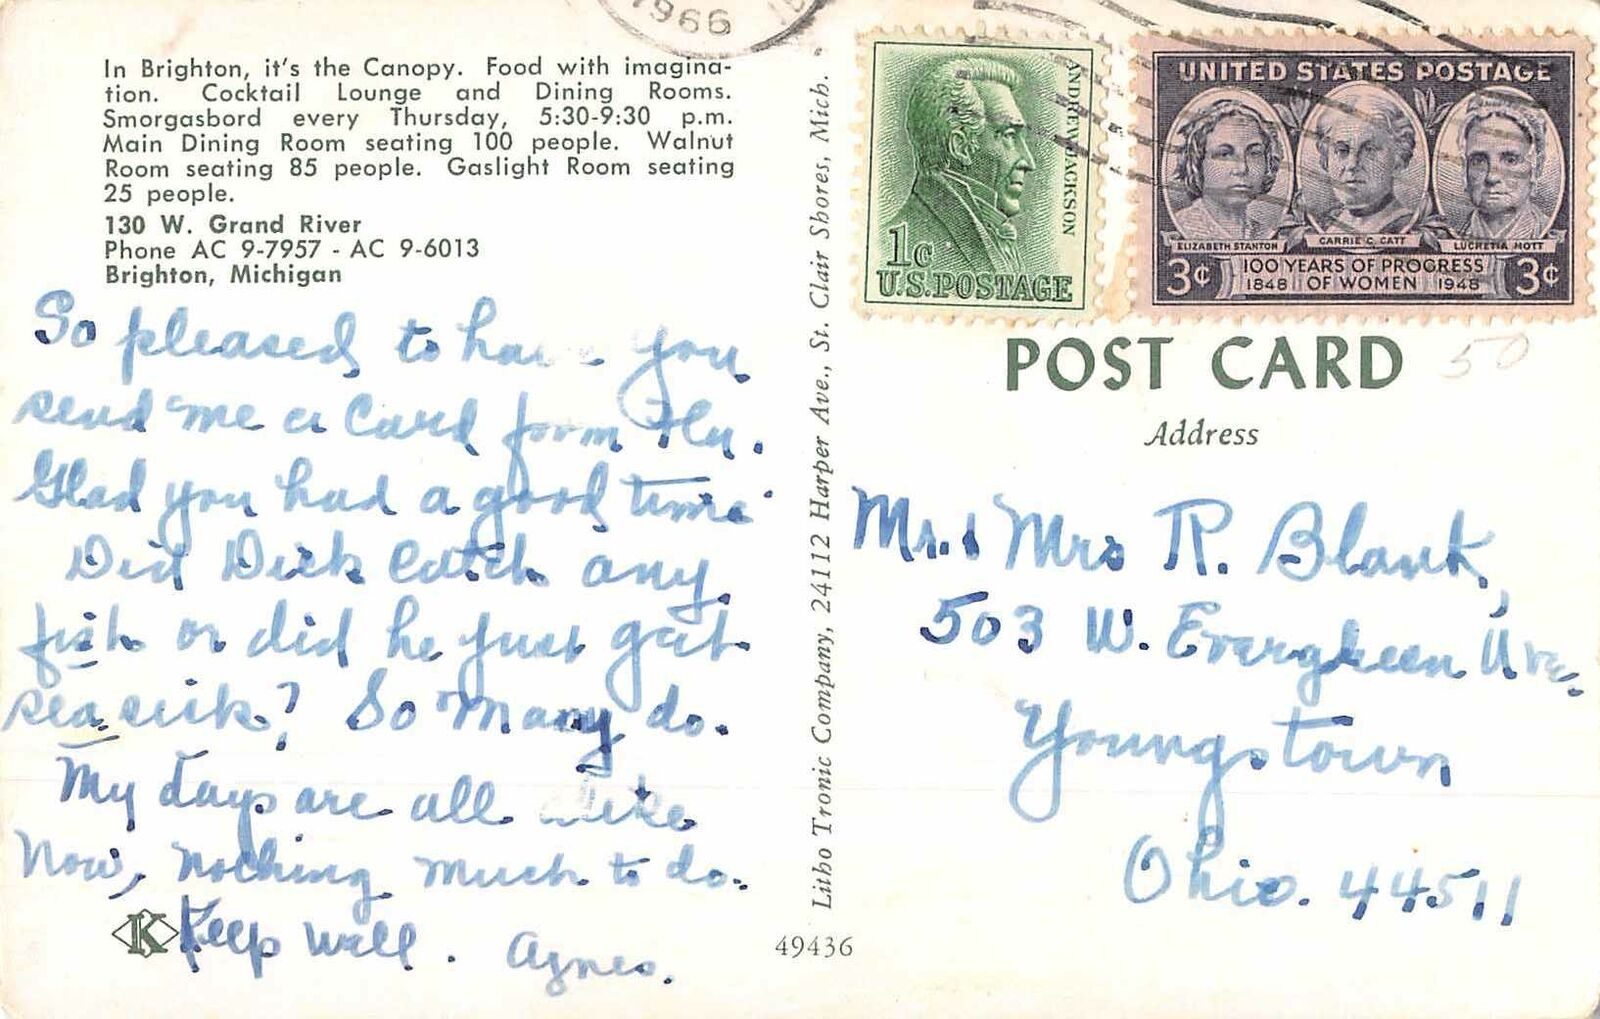 1966
In Brighton, it's the Canopy. Food with imagina-
tion. Cocktail Lounge and Dining Rooms.
Smorgasbord every Thursday, 5:30-9:30 p.m.
Main Dining Room seating 100 people. Walnut
Room seating 85 people. Gaslight Room seating
25 people.
130 W. Grand River
Phone AC 9-7957 - AC 9-6013
Brighton, Michigan
So pleased to have you
send me a Card from Fla.
Glad you had a good time
Did Dick catch any
fish or did he just get
sea sick? So many do.
My days are all alike
Now, nothing much to do.
K Keep well. Agnes.
Litho Tronic Company, 24112 Harper Ave., St. Clair Shores, Mich.
49436
ANDREW JACKSON
1c
U.S. POSTAGE
UNITED STATES POSTAGE
ELIZABETH STANTON CARRIE C. CATT LUCRETIA MOTT
3¢ 100 YEARS OF PROGRESS 3¢
1848 OF WOMEN 1948
POST CARD
50
Address
Mr. & Mrs R. Blank,
503 W. Evergreen Ave.
Youngstown
Ohio. 44511